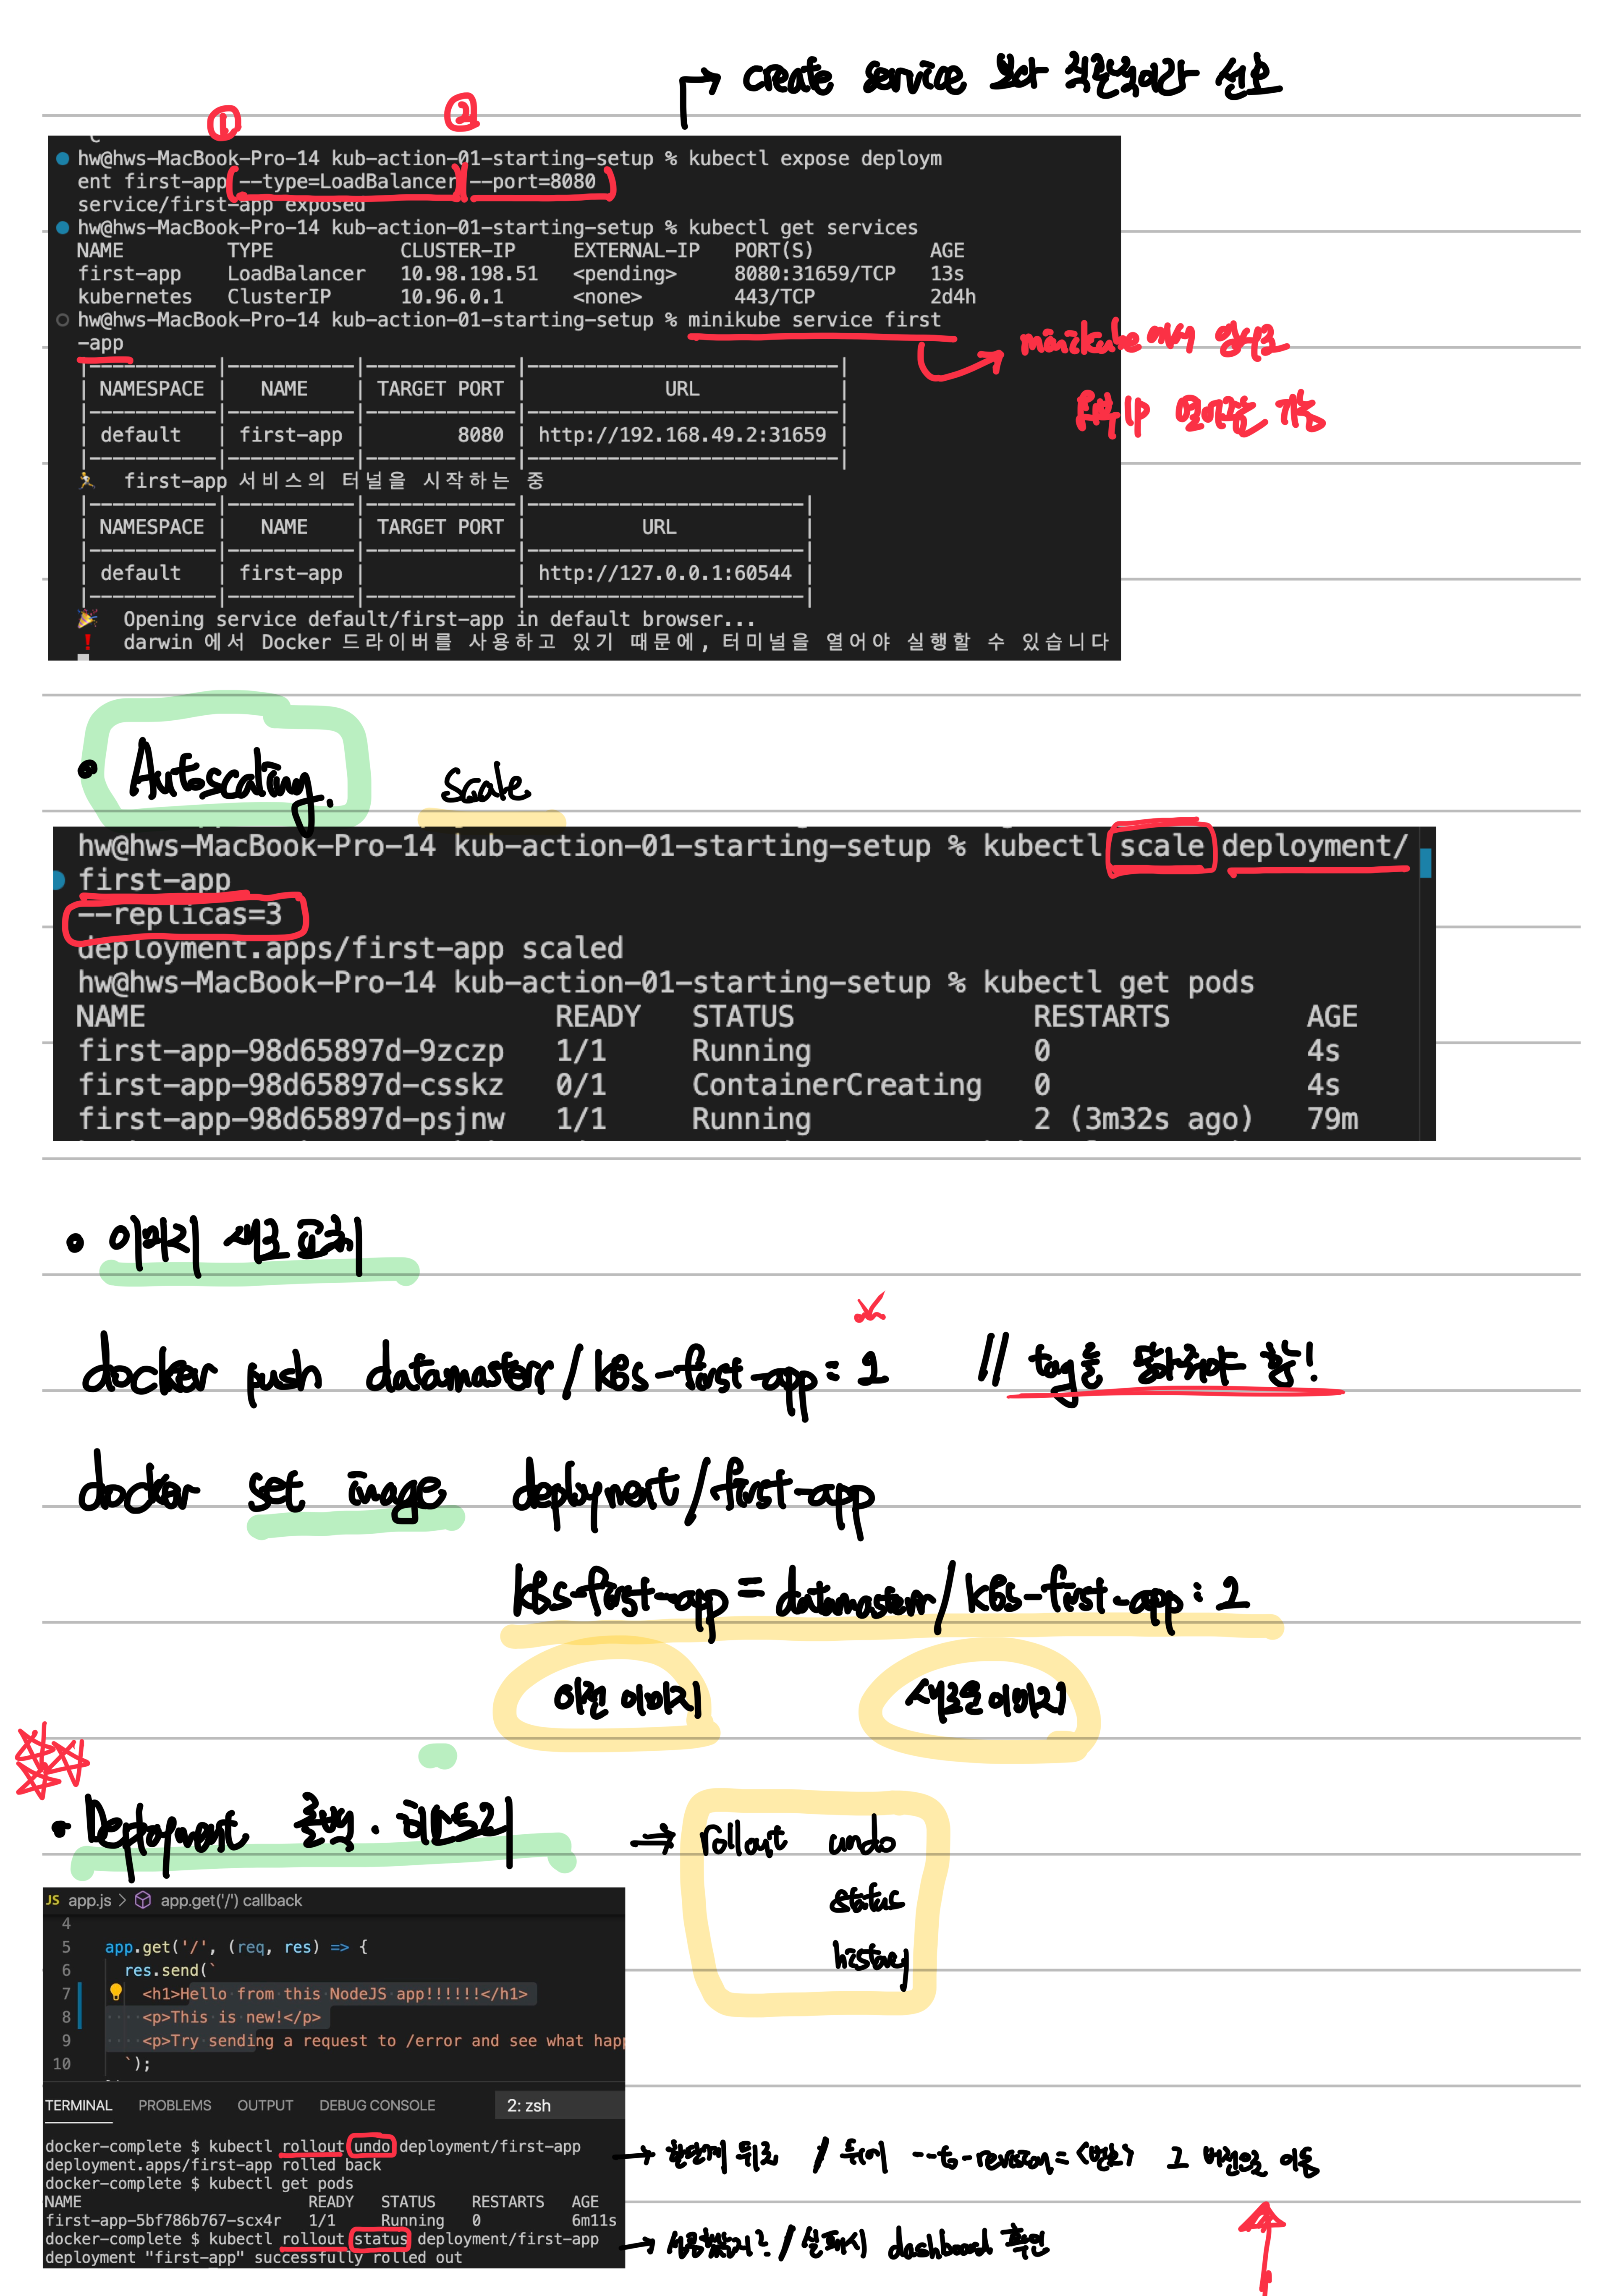 create service 보다 직관적이라 선호
① ②
hw@hws-MacBook-Pro-14 kub-action-01-starting-setup % kubectl expose deploym
ent first-app --type=LoadBalancer --port=8080
service/first-app exposed
hw@hws-MacBook-Pro-14 kub-action-01-starting-setup % kubectl get services
NAME TYPE CLUSTER-IP EXTERNAL-IP PORT(S) AGE
first-app LoadBalancer 10.98.198.51 <pending> 8080:31659/TCP 13s
kubernetes ClusterIP 10.96.0.1 <none> 443/TCP 2d4h
hw@hws-MacBook-Pro-14 kub-action-01-starting-setup % minikube service first
-app
minikube에서 임시로
|-----------|-----------|-------------|---------------------------|
| NAMESPACE | NAME | TARGET PORT | URL |
|-----------|-----------|-------------|---------------------------|
ip 열어주는 기능
| default | first-app | 8080 | http://192.168.49.2:31659 |
|-----------|-----------|-------------|---------------------------|
🏃 first-app 서비스의 터널을 시작하는 중
|-----------|-----------|-------------|------------------------|
| NAMESPACE | NAME | TARGET PORT | URL |
|-----------|-----------|-------------|------------------------|
| default | first-app | | http://127.0.0.1:60544 |
|-----------|-----------|-------------|------------------------|
🎉 Opening service default/first-app in default browser...
❗ darwin 에서 Docker 드라이버를 사용하고 있기 때문에, 터미널을 열어야 실행할 수 있습니다
• Autoscaling. scale
hw@hws-MacBook-Pro-14 kub-action-01-starting-setup % kubectl scale deployment/
first-app
--replicas=3
deployment.apps/first-app scaled
hw@hws-MacBook-Pro-14 kub-action-01-starting-setup % kubectl get pods
NAME READY STATUS RESTARTS AGE
first-app-98d65897d-9zczp 1/1 Running 0 4s
first-app-98d65897d-csskz 0/1 ContainerCreating 0 4s
first-app-98d65897d-psjnw 1/1 Running 2 (3m32s ago) 79m
• 이미지 새로 교체
docker push datamasterr/k8s-first-app:2 // tag를 달아줘야 함!
docker set image deployment/first-app
k8s-first-app=datamasterr/k8s-first-app:2
이전 이미지 새로운 이미지
• Deployment 롤백. 히스토리 ⇒ rollout undo
status
history
JS app.js > app.get('/') callback
4
5 app.get('/', (req, res) => {
6 res.send(`
7 <h1>Hello from this NodeJS app!!!!!!</h1>
8 <p>This is new!</p>
9 <p>Try sending a request to /error and see what happ
10 `);
TERMINAL PROBLEMS OUTPUT DEBUG CONSOLE 2: zsh
docker-complete $ kubectl rollout undo deployment/first-app
→ 한단계 뒤로 / 뒤에 --to-revision=<번호> 그 버전으로 이동
deployment.apps/first-app rolled back
docker-complete $ kubectl get pods
NAME READY STATUS RESTARTS AGE
first-app-5bf786b767-scx4r 1/1 Running 0 6m11s
docker-complete $ kubectl rollout status deployment/first-app
→ 성공했는지? / 실패시 dashboard 확인
deployment "first-app" successfully rolled out